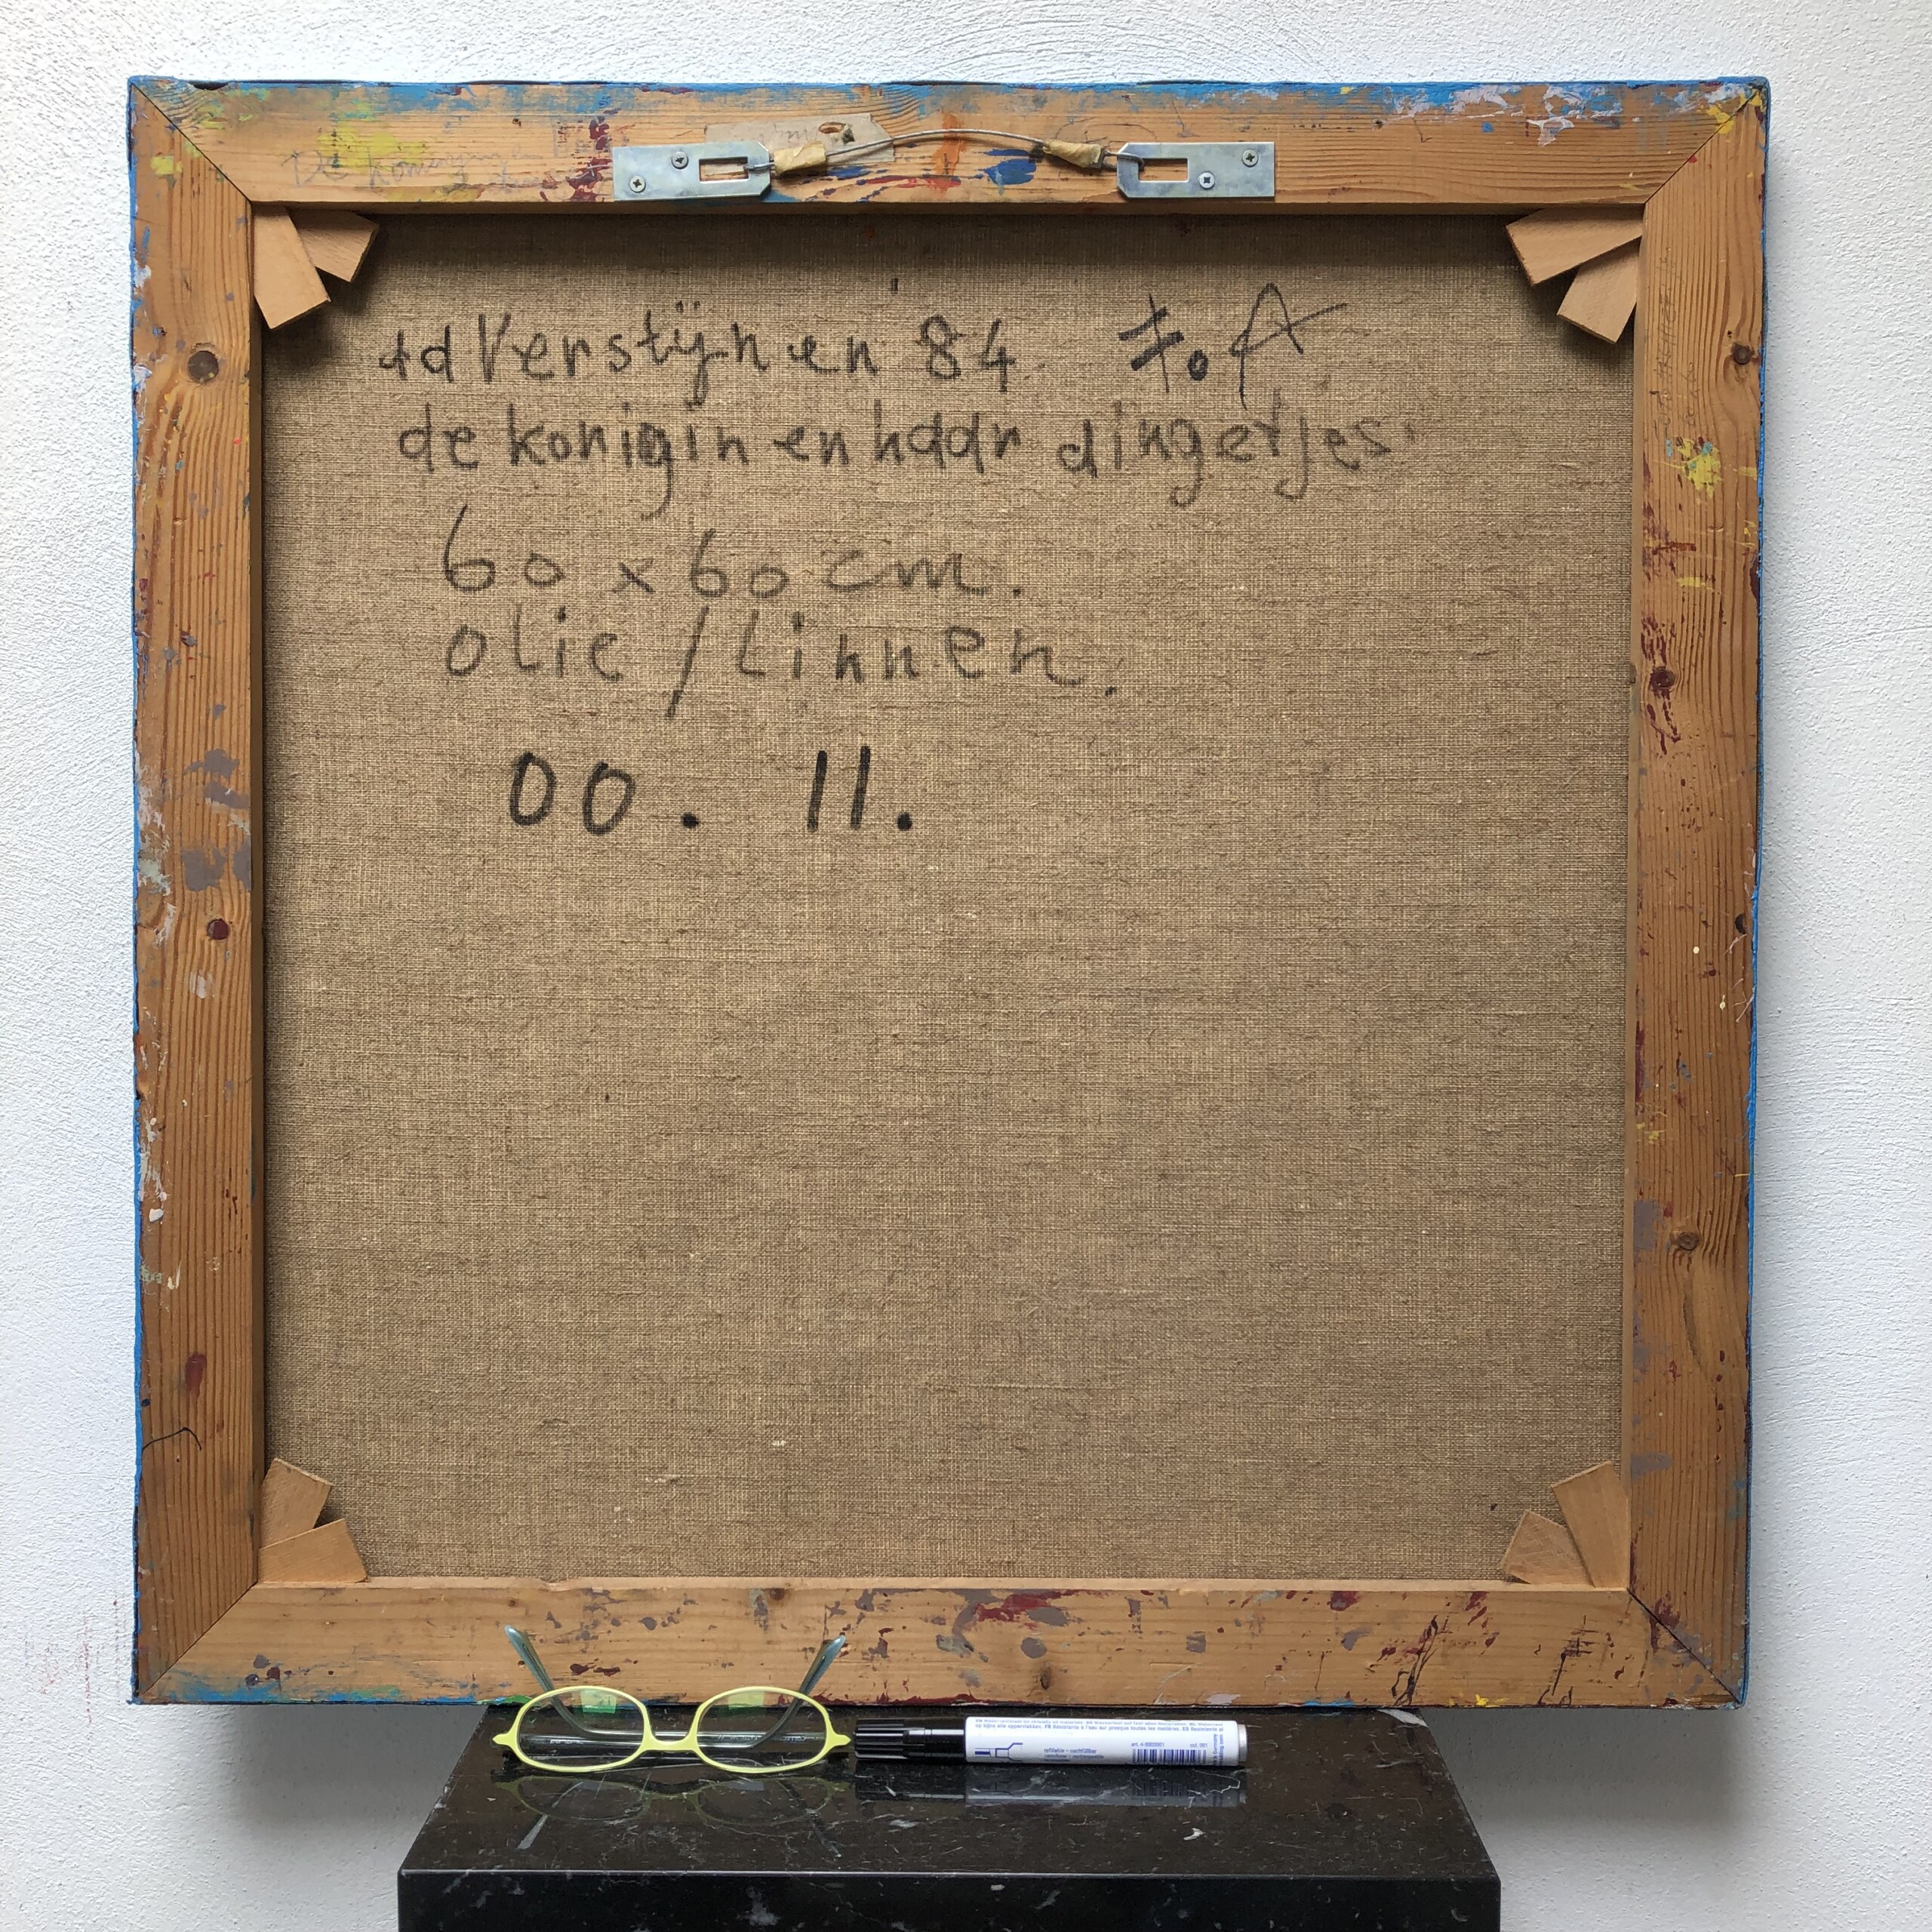 Ad Verstijnen 84
de konigin en haar dingetjes.
60 x 60 cm.
olie / Linnen.
00. 11.